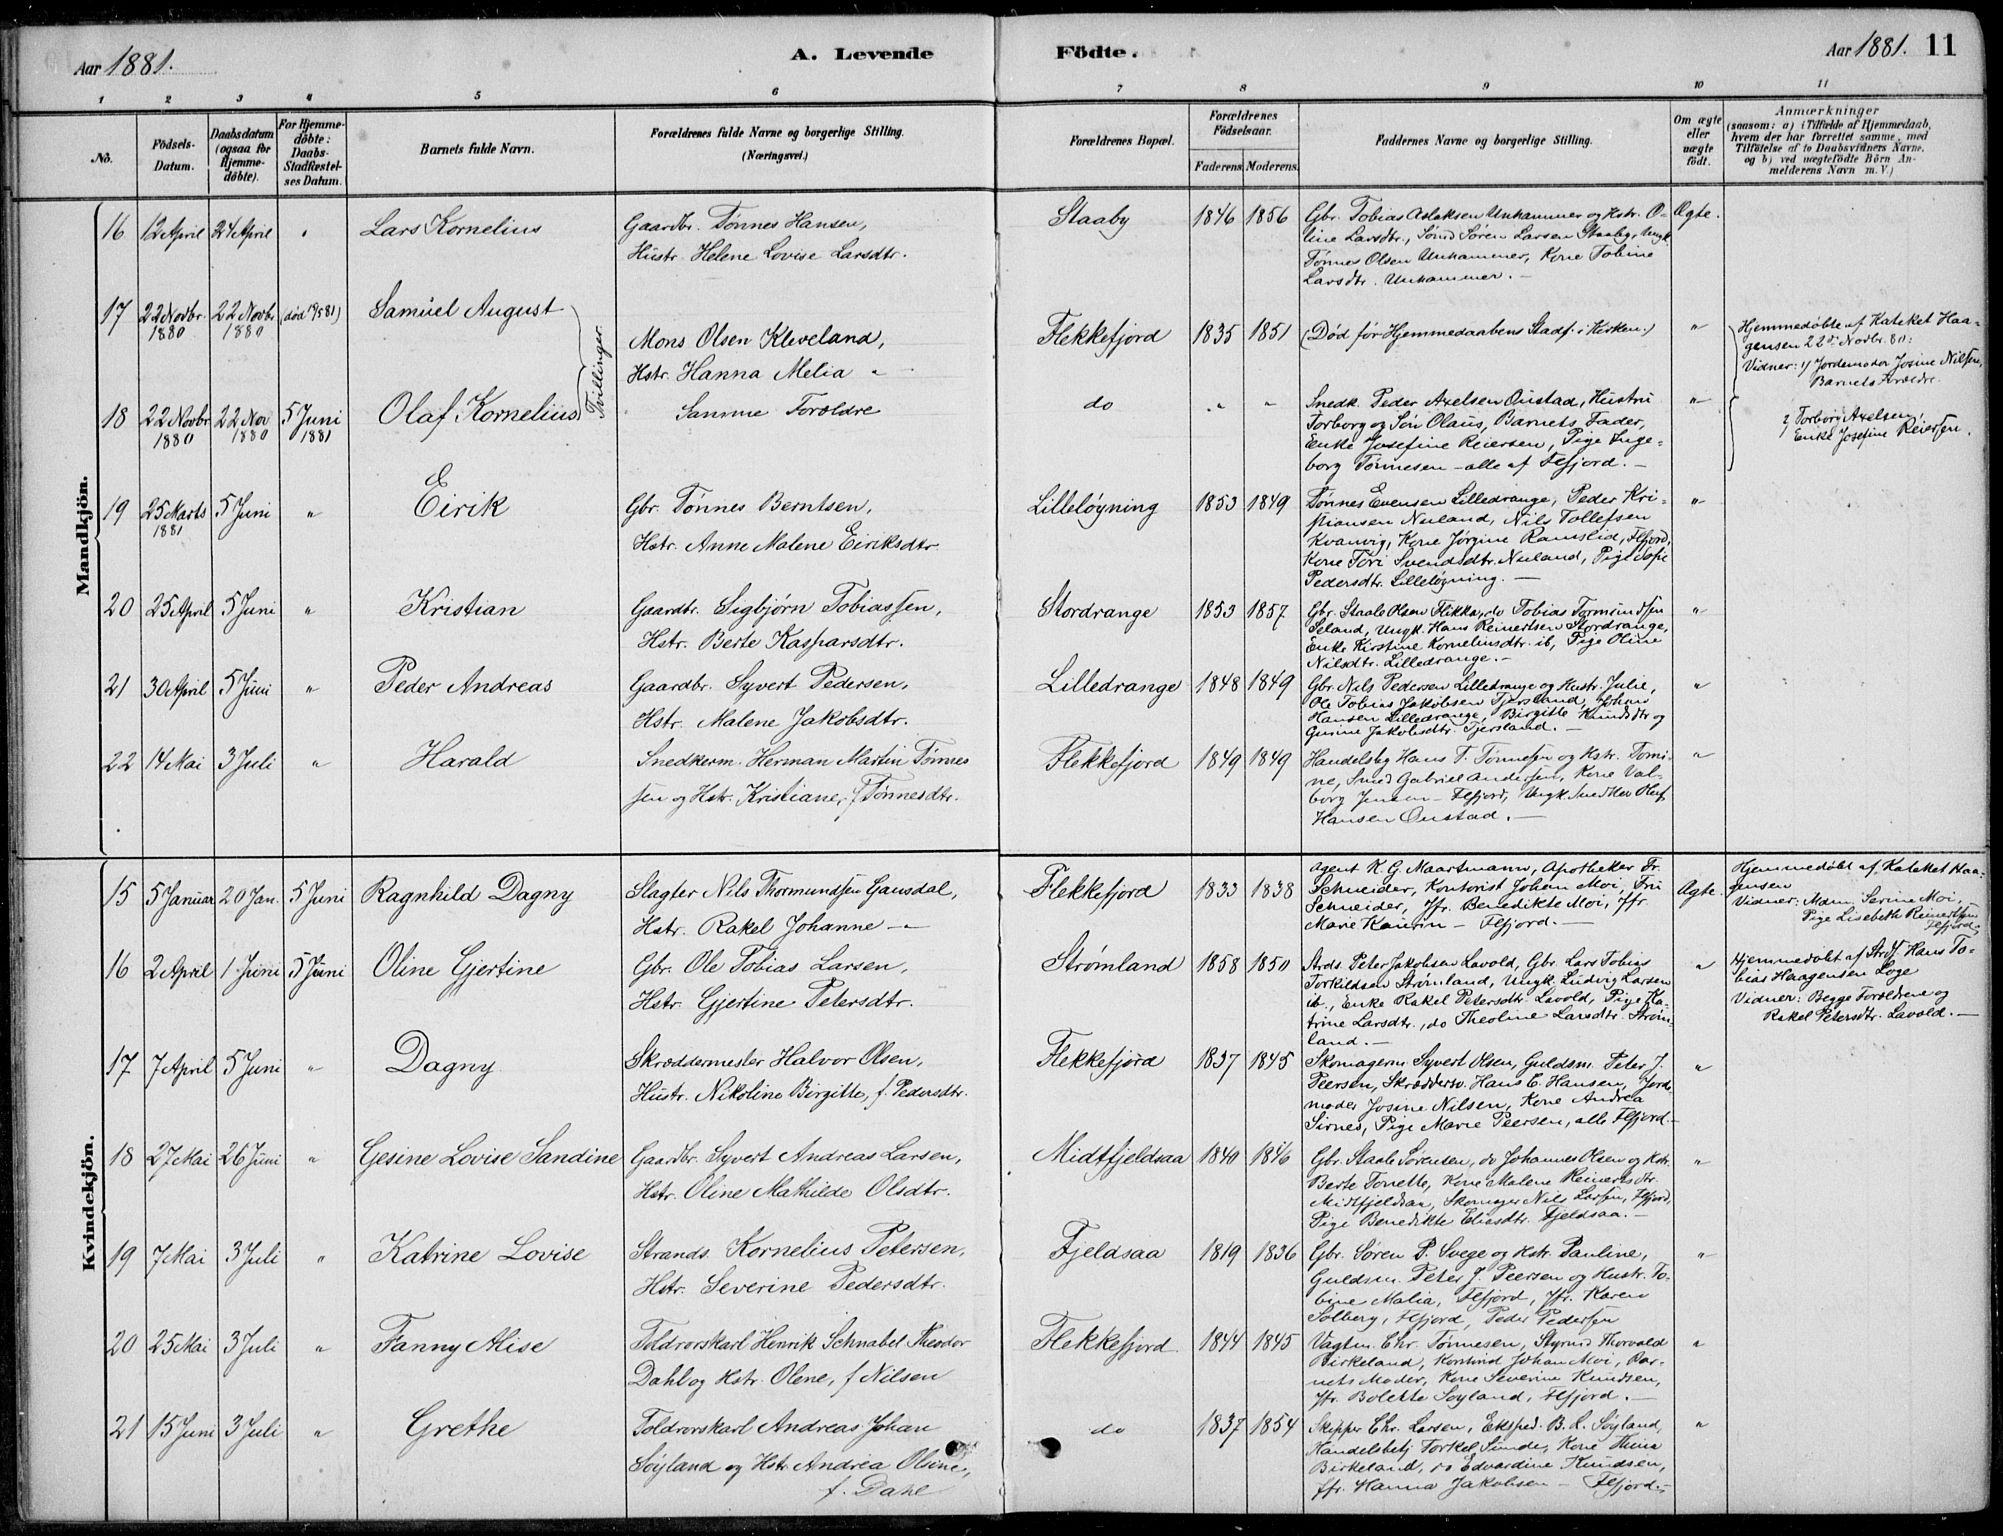 Aar 1881.
A. Levende
Födte.
Aar 1881.
11
1 2 3 4 5 6 7 8 9 10 11
No.
Födsels-
Datum.
Daabsdatum
(ogsaa for
Hjemme-
döbte).
For Hjemme-
döbte:
Daabs-
Stadfæstel-
ses Datum.
Barnets fulde Navn.
Forældrenes fulde Navne og borgerlige Stilling.
(Næringsvei.)
Forældrenes Bopæl.
Forældrenes
Födselsaar.
Faderens. Moderens.
Faddernes Navne og borgerlige Stilling.
Om ægte
eller
uægte
födt.
Anmærkninger
(saasom: a) i Tilfælde af Hjemmedaab,
hvem der har forrettet samme, med
Tilföielse af to Daabsvidners Navne,
og b) ved uægtefödte Börn An-
melderens Navn m. V.)
Mandkjön.
16 12 April 24 April " Lars Kornelius
Gaardbr. Tønnes Hansen,
Hustr. Helene Lovise Larsdtr.
Staaby 1846 1856
Gbr. Tobias Aslaksen Unhammer og Hstr. O-
line Larsdtr., Smed Søren Larsen Staaby, Ungk.
Tønnes Olsen Unhammer, Kone Tobine
Larsdtr. Unhammer. —
Ægte.
17 22 Novbr. 1880 22 Novbr. 1880 (død 19/5 81) Samuel August
Tvillinger.
Mons Olsen Kleveland,
Hstr. Hanna Melia "
Flekkefjord 1835 1851
(Død før Hjemmedaabens Stadf. i Kirken.)
"
Hjemmedøbte af Kateket Haa-
gensen 22de Novbr. 80:
Vidner: 1/ Jordemoder Josine Nilsen,
Barnets Forældre.
18 22 Novbr 1880 22 Nov 1880 5 Juni 1881 Olaf Kornelius
Samme Forældre
do " "
Snedk. Peder Axelsen Onstad, Hustru
Torborg og Søn Olaus, Barnets Fader,
Enke Josefine Reiersen, Pige Inge-
borg Tønnesen – alle af Flfjord. —
"
2/ Torborg Axelsen,
Enke Josefine Reiersen.
19 25 Marts 1881 5 Juni " Eirik
Gbr. Tønnes Berntsen,
Hstr. Anne Malene Eiriksdtr
Lilleløgning 1853 1849
Tønnes Evensen Lilledrange, Peder Kri-
stiansen Neuland, Nils Tollefsen
Kvanvig, Kone Jørgine Ramslid, Flfjord,
Kone Tori Svendsdtr. Neuland, Pige Sofie
Pedersdtr. Lilleløgning. —
"
20 25 April 5 Juni " Kristian
Gaardbr. Sigbjørn Tobiassen,
Hstr. Berte Kasparsdtr.
Stordrange 1853 1857
Gbr. Staale Olsen Flikka, do Tobias Tormundsen
Seland, Ungk. Hans Reinertsen Stordrange,
Enke Kirstine Korneliusdtr. ib., Pige Oline
Nilsdtr. Lilledrange. —
"
21 30 April 5 Juni " Peder Andreas
Gaardbr. Syvert Pedersen,
Hstr. Malene Jakobsdtr.
Lilledrange 1848 1849
Gbr. Nils Pedersen Lilledrange og Hustr. Julie,
Ole Tobias Jakobsen Tjersland, Johan
Hansen Lilledrange, Birgitte Knudsdtr og
Gurine Jakobsdtr. Tjersland. —
"
22 14 Mai 3 Juli " Harald
Snedkerm. Herman Martin Tønnes
sen og Hstr. Kristiane, f. Tønnesdtr.
Flekkefjord 1849 1849
Handelsbg Hans T. Tønnesen og Hstr. Tomi-
ne, Smed Gabriel Andersen, Kone Val-
borg Jensen – Flfjord, Ungk. Snedker Oluf
Hansen Onstad. —
"
Kvindekjön.
15 5 Januar 20 Jan. 5 Juni Ragnhild Dagny
Slagter Nils Thormundsen Gausdal,
Hstr. Rakel Johanne "
Flekkefjord 1833 1838
Agent K. G. Maartmann, Apotheker Fr.
Schneider, Kontorist Johan Moi, Fru
Schneider, Jfr. Benedikte Moi, Jfr.
Marie Kaurin – Flfjord. —
Ægte.
Hjemmedøbt af Kateket Haa-
gensen
Vidner: Mdm. Serine Moi,
Pige Lisebeth Reinertsen
Flfjord.
16 2 April 1 Juni 5 Juni Oline Gjertine
Gbr. Ole Tobias Larsen,
Hstr. Gjertine Petersdtr.
Strømland 1858 1850
Strds. Peter Jakobsen Lavold, Gbr. Lars Tobias
Torkildsen Strømland, Ungk. Ludvig Larsen
ib., Enke Rakel Petersdtr. Lavold, Pige Ka-
trine Larsdtr., do Theoline Larsdtr. Strøm-
land. —
"
Hjemmedøbt af Strdf. Hans To-
bias Haagensen Loge
Vidner: Begge Forældrene og
Rakel Petersdtr. Lavold. —
17 7 April 5 Juni " Dagny
Skræddermester Halvor Olsen,
Hustr. Nikoline Birgitte, f. Pedersdtr.
Flekkefjord 1837 1845
Skomagerm. Syvert Olsen, Guldsm. Peter J.
Peersen, Skræddersv. Hans E. Hansen, Jorde
moder Josine Nilsen, Kone Andrea
Sirnes, Pige Marie Peersen, alle Flfjord. —
"
18 27 Mai 26 Juni " Gesine Lovise Sandine
Gaardbr. Syvert Andreas Larsen,
Hstr. Oline Mathilde Olsdtr.
Midtfjeldsaa 1840 1846
Gbr. Staale Sørensen, do Johannes Olsen og Hstr.
Berte Tonette, Kone Malene Reinertsdtr.
Midtfjeldsaa, Skomager Nils Larsen, Flfjord,
Pige Benedikte Eliasdtr. Fjeldsaa. —
"
19 7 Mai 3 Juli " Katrine Lovise
Strands. Kornelius Petersen,
Hstr. Severine Pedersdtr.
Fjeldsaa 1819 1836
Gbr. Søren P. Svege og Hstr. Pauline,
Guldsm. Peter J. Peersen og Hustr. To-
bine Malia, Flfjord, Jfr. Karen
Solberg, Flfjord, Peder Pedersen
"
20 25 Mai 3 Juli " Fanny Alise
Toldrorskarl Henrik Schnabel Theodor
Dahl og Hstr. Olene, f. Nilsen
Flekkefjord 1844 1845
Vagtm. Chr. Tønnesen, Styrmd Thorvald
Birkeland, Kontorist Johan Moi, Bar-
nets Moder, Kone Severine Knudsen,
Jfr. Bolette Søyland, Flfjord. —
"
21 15 Juni 3 Juli " Grethe
Toldrorskarl Andreas Johan
Søyland og Hstr. Andrea Olsine,
f. Dahl
do 1837 1854
Skipper Chr. Larsen, Eksped. B. L. Søyland,
Handelsbetj Torkel Sunde, Kone Thina
Birkeland, do Edvardine Knudsen,
Jfr. Hanna Jakobsen – Flfjord. —
"